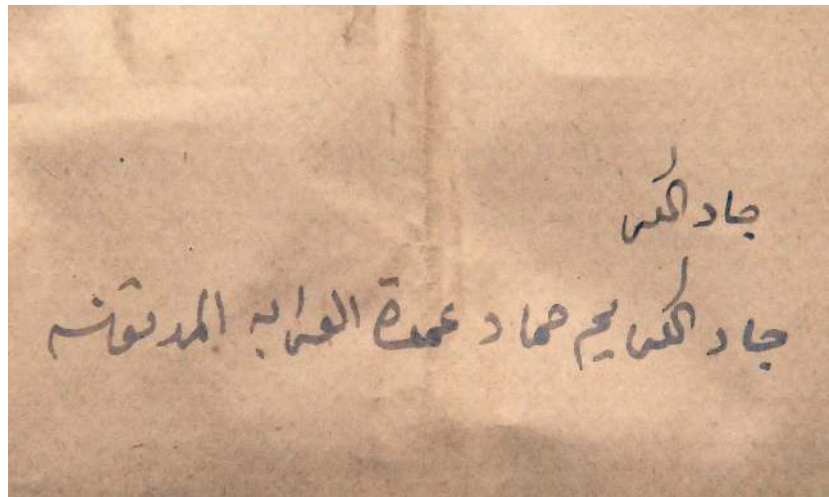 جاد الكر
جاد الكريم حماد عمدة العرابه المدفونه